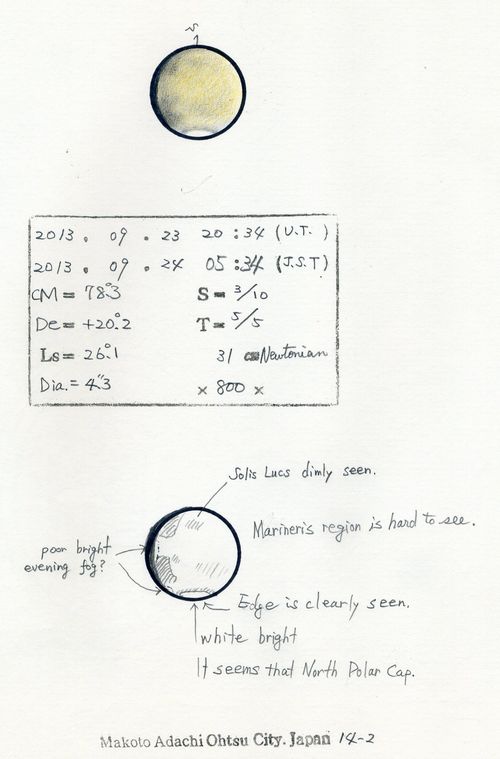 S
2013. 09. 23 20:34 (U.T.)
2013. 09. 24 05:34 (J.S.T)
CM = 78.°3 S = 3/10
De = +20.°2 T = 5/5
Ls = 26.°1 31 cm Newtonian
Dia. = 4."3 × 800 ×
Solis Lucs dimly seen.
Marineris region is hard to see.
poor bright
evening fog?
Edge is clearly seen.
white bright
It seems that North Polar Cap.
Makoto Adachi Ohtsu City. Japan 14-2